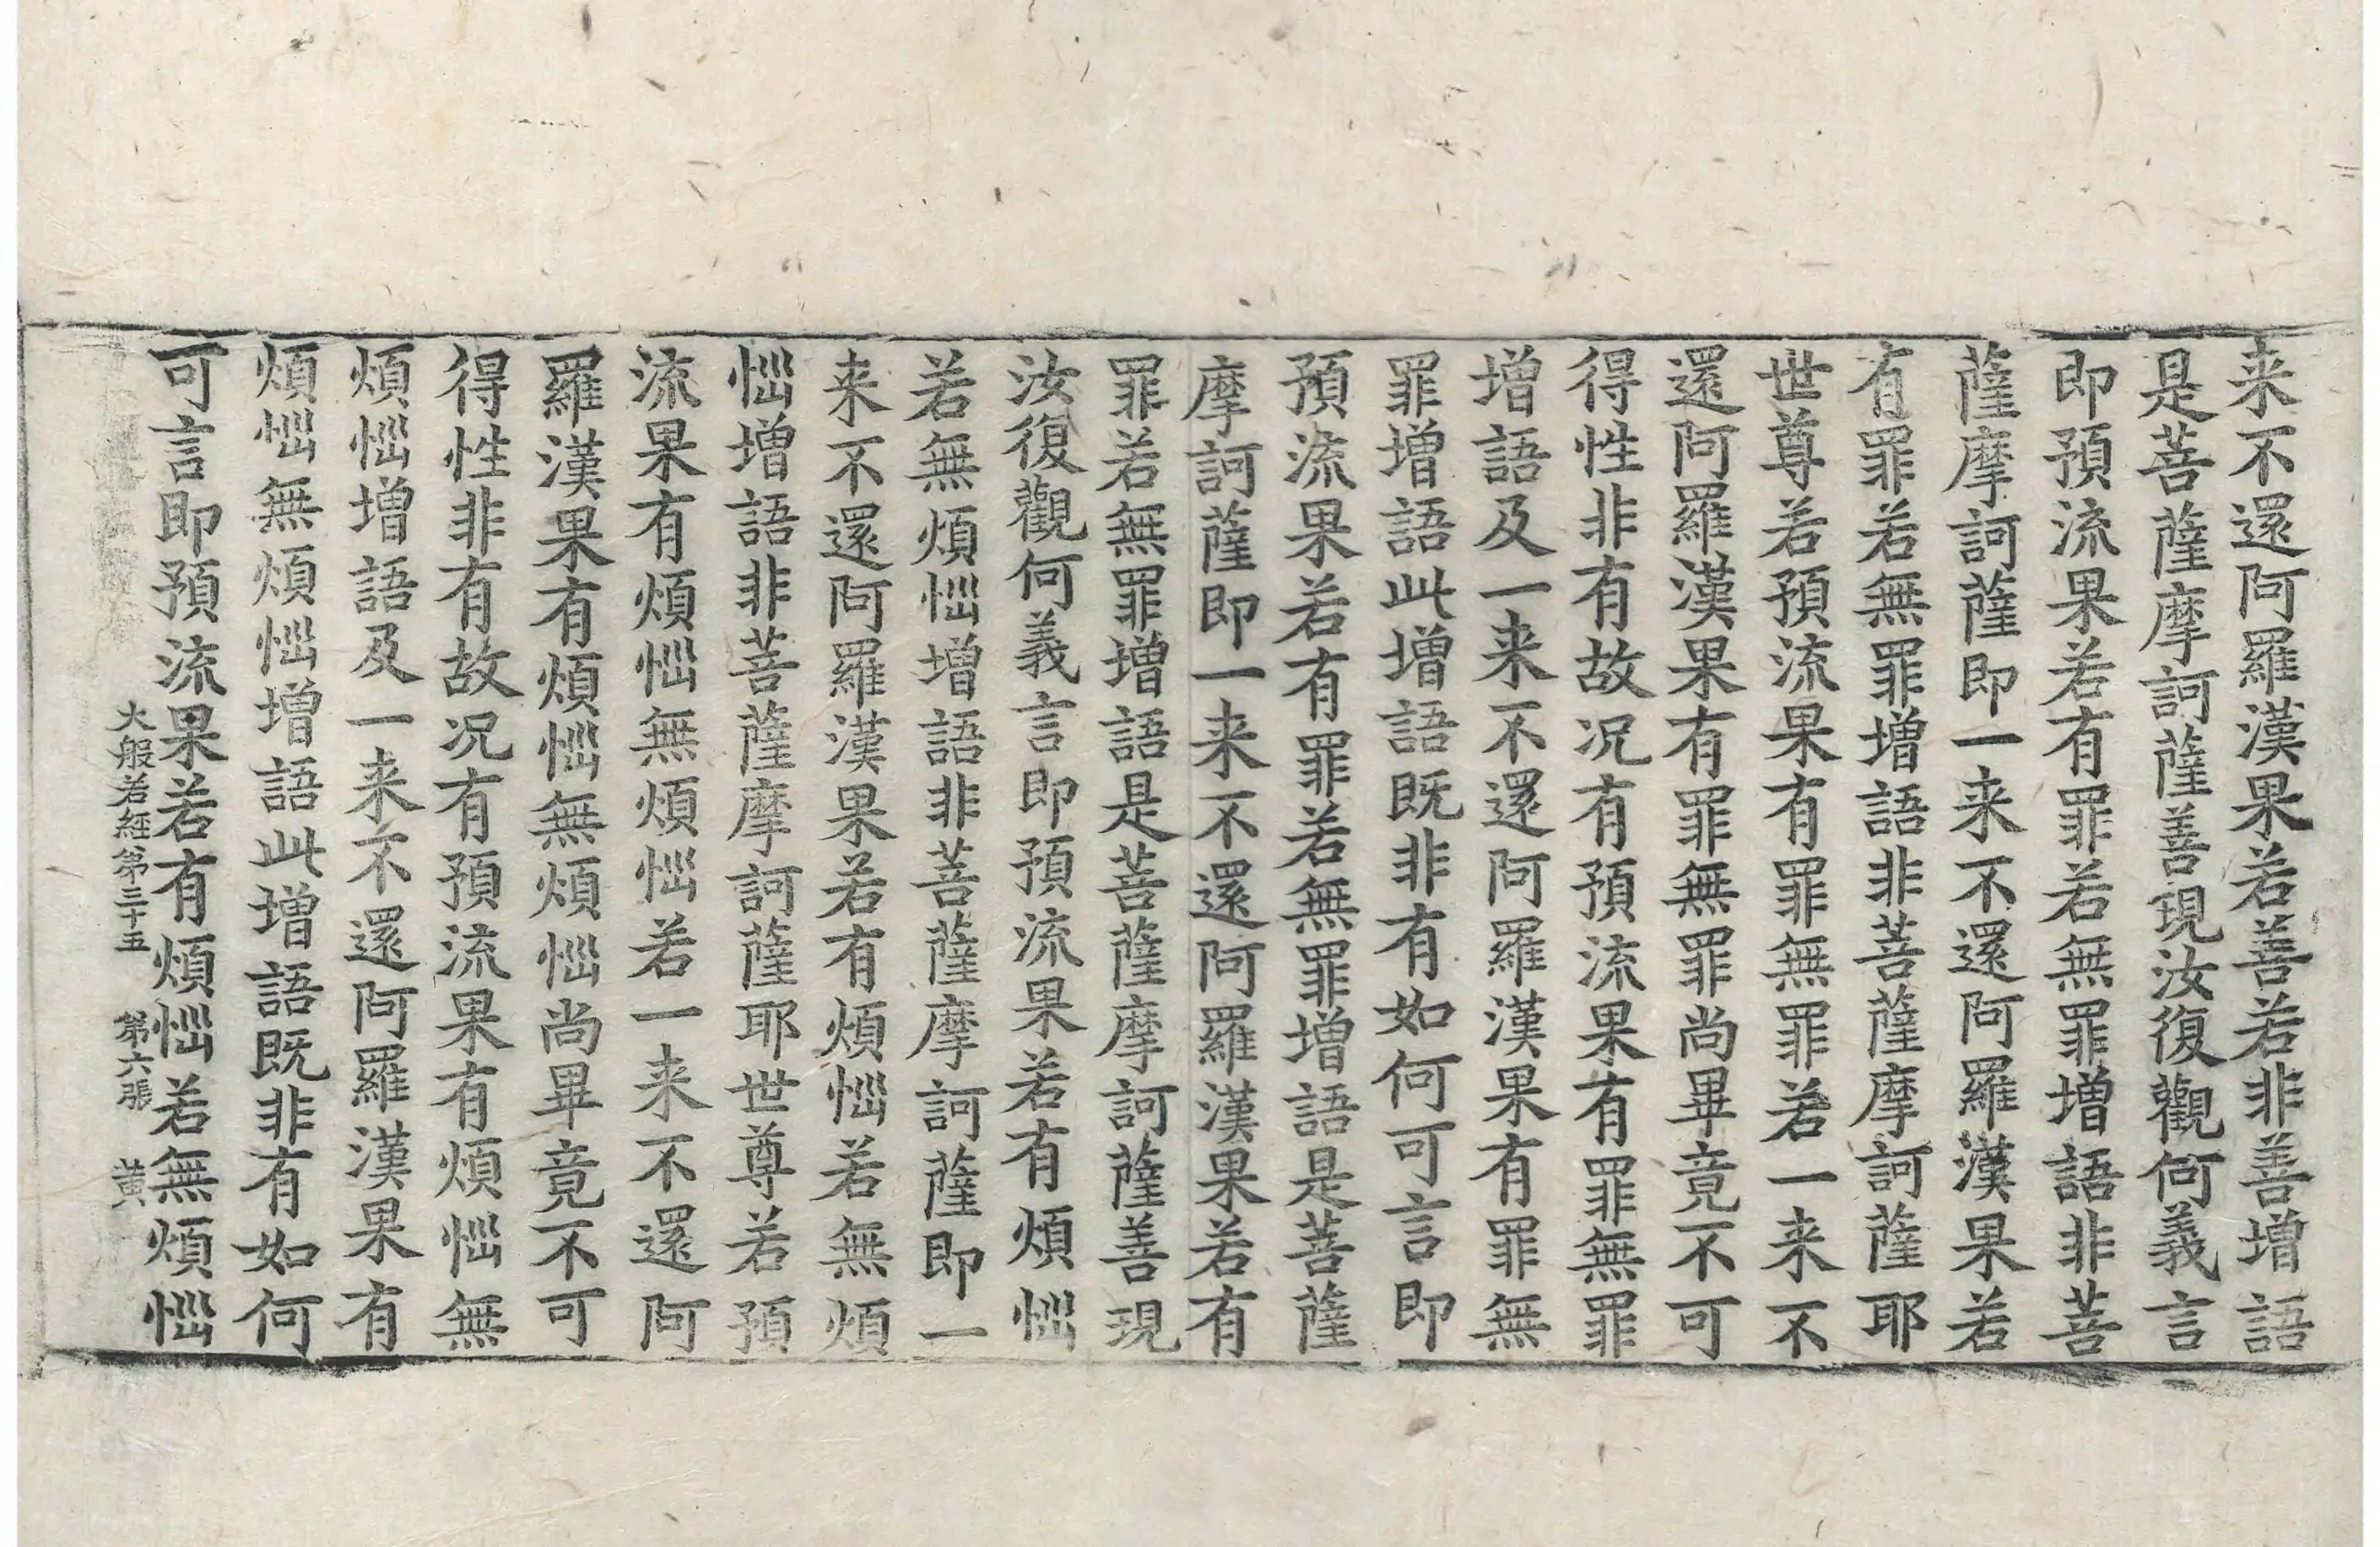 来不還阿羅漢果若善若非善增語
是菩薩摩訶薩善現汝復觀何義言
即預流果若有罪若無罪增語非菩
薩摩訶薩即一来不還阿羅漢果若
有罪若無罪增語非菩薩摩訶薩耶
世尊若預流果有罪無罪若一来不
還阿羅漢果有罪無罪尚畢竟不可
得性非有故况有預流果有罪無罪
增語及一来不還阿羅漢果有罪無
罪增語此增語既非有如何可言即
預流果若有罪若無罪增語是菩薩
摩訶薩即一来不還阿羅漢果若有
罪若無罪增語是菩薩摩訶薩善現
汝復觀何義言即預流果若有煩惱
若無煩惱增語非菩薩摩訶薩即一
来不還阿羅漢果若有煩惱若無煩
惱增語非菩薩摩訶薩耶世尊若預
流果有煩惱無煩惱若一来不還阿
羅漢果有煩惱無煩惱尚畢竟不可
得性非有故况有預流果有煩惱無
煩惱增語及一来不還阿羅漢果有
煩惱無煩惱增語此增語既非有如何
可言即預流果若有煩惱若無煩惱
大般若經第三十五 第六張 黄